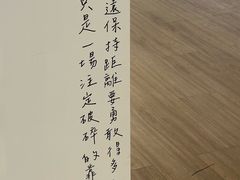 遠保持距離要勇敢得多
只是一場注定破碎的靠